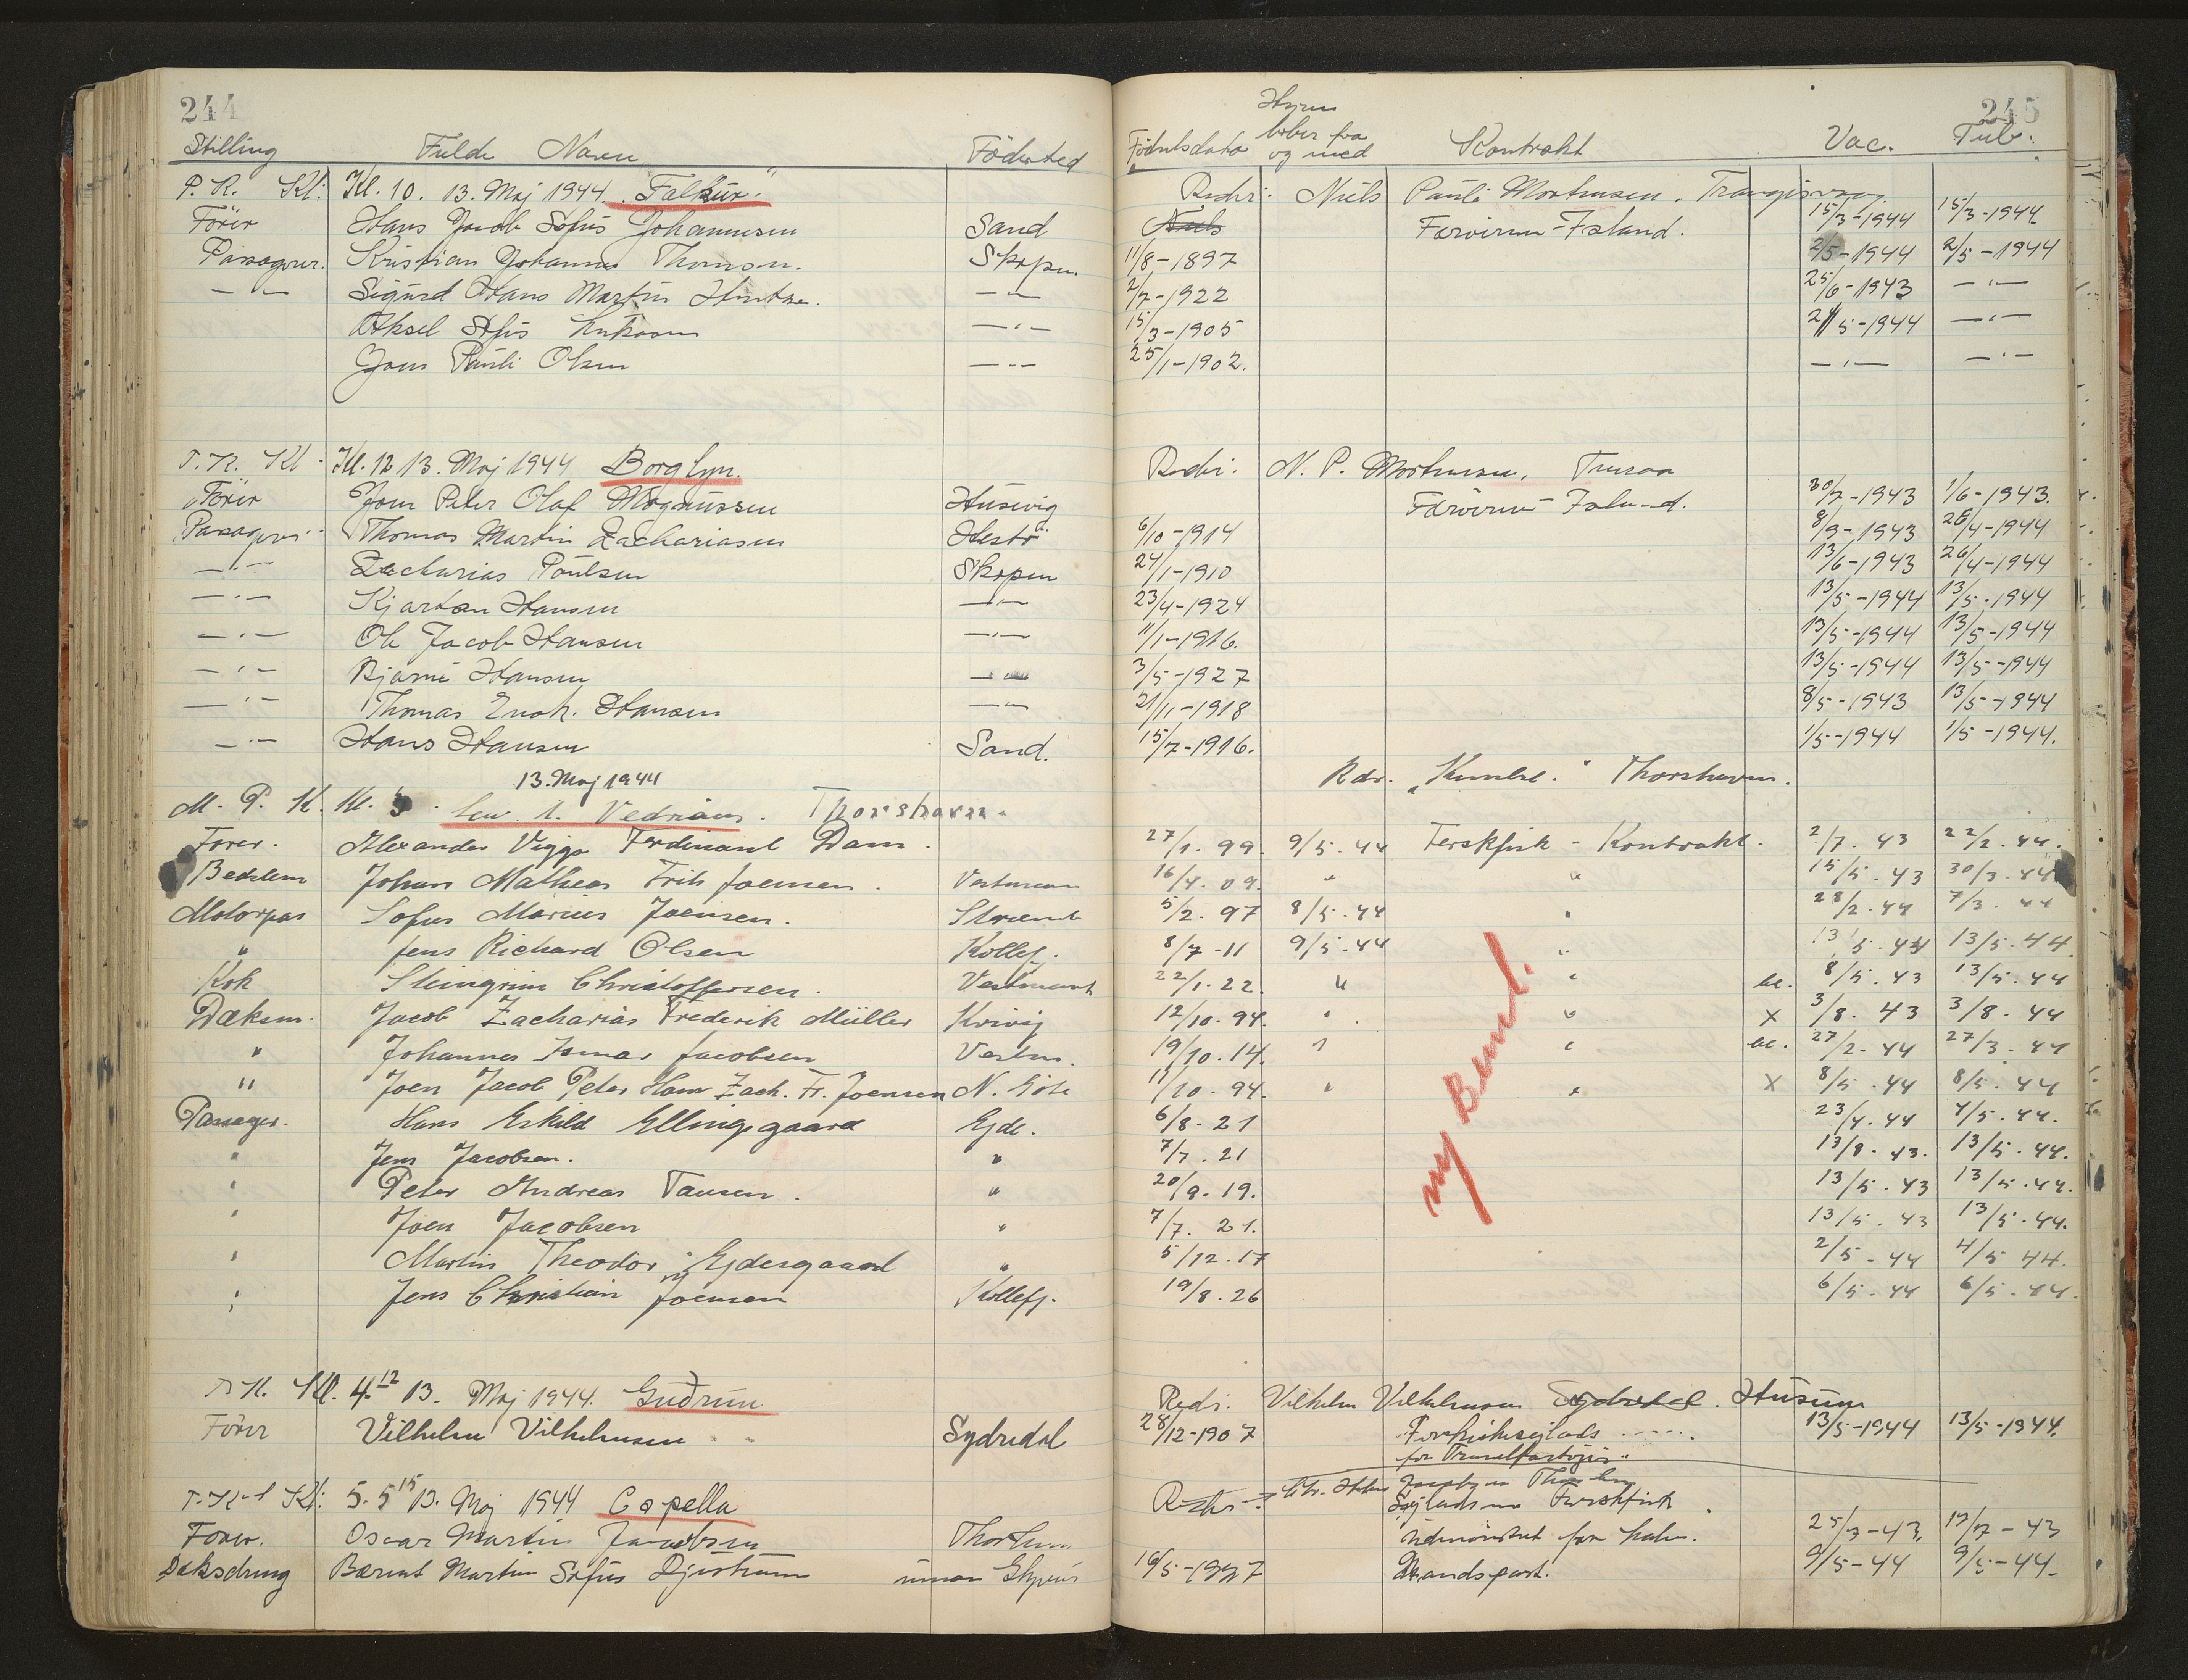 244
Stilling Fulde Navn Födested
P. K. Kl: Kl. 10. 13. Maj 1944. „Falkur."
Förer Hans Jacob Sofus Johannesen Sand
Passager. Kristian Johannes Thomsen. Skopun.
— — Sigurd Hans Martin — " —
Aksel Sofus — " —
Jens Pauli Olsen — " —
Kl. 12 13. Maj 1944 Borglyn.
Förer Jens Peter Olaf Magnussen Husevig
Passager Thomas Martin Zachariasen Hestö
— " — Zacharias Poulsen Skopun
— " — Kjartan Hansen — " —
— " — Ole Jacob Hansen — " —
— " — Bjarni Hansen — " —
— " — Thomas Enok. Hansen — " —
— " — Hans Hansen Sand.
13. Maj 1944
M. P. K. Kl. 5. Vedrines. Thorshavn.
Förer. Alexander Viggo Ferdinand Dam.
Bedstem Johan Matheas Frits Joensen. Vestman
Motorpas Sofus Marius Joensen. Strend
" Jens Richard Olsen Kollefj.
Kok Steingrim Christoffersen. Vestmanh
Dæksm. Jacob Zacharias Frederik Müller Kvivig
" Johannes Ismar Jacobsen Vestm.
" Joen Jacob Peter Hans Zach. Fr. Joensen N. Göte
Passager. Hans Eskild Ellingsgaard Ejde.
" Jens Jacobsen. "
" Peter Andreas Tausen. "
" Joen Jacobsen "
" Martin Theodor Ejdesgaard "
" Jens Christian Joensen Kollefj.
Kl. 4.12 13. Maj 1944. Guðrun
Förer Vilhelm Vilhelmsen Sydredal
Kl: 5.15 13. Maj 1944 Capella
Förer. Oscar Martin Jacobsen Thorshavn
Daksdreng Martin Sofus
245
Hyren löber fra og med
Födselsdato Kontrakt Vac. Tub.
Reder: Niels Pauli Mortensen. Trangisvaag.
Niels Færöerne-Island. 15/3-1944 15/3-1944
11/8-1897 2/5-1944 2/5-1944
2/7-1922 25/6-1943 — " —
15/3-1905 24/5-1944 — " —
25/1-1902. — " — — " —
Reder: N. P. Mortensen, Tveraa
Færöerne-Island. 30/7-1943 1/6-1943.
6/10-1914 8/9-1943 28/4-1944
24/1-1910 13/6-1943 26/4-1944
23/4-1924 13/5-1944 13/5-1944
11/1-1916. 13/5-1944 13/5-1944
3/5-1927 13/5-1944 13/5-1944
21/11-1918 8/5-1943 13/5-1944
15/7-1916. 1/5-1944 1/5-1944.
Rdr. Thorshavn.
27/1. 99. 9/5. 44 Ferskfisk - Kontrakt. 2/7. 43 22/2. 44.
16/4. 09. " " 15/5. 43 30/3. 44
5/2. 97 8/5. 44 " 28/2. 44 7/3. 44
8/7-11 9/5. 44 " 13/5. 44 13/5. 44
22/1. 22. " " 8/5. 43 13/5. 44
12/10. 94. " " X 3/8. 43 3/8. 44
19/10. 14. " " 27/2. 44 27/3. 44
11/10. 94. " " X 8/5. 44 8/5. 44
6/8. 21 23/4. 44 4/5. 44.
7/7. 21 13/8. 43. 13/5. 44.
20/9. 19. 13/5. 43 13/5. 44.
7/7. 21. 13/5. 43 13/5. 44.
5/12. 17 2/5. 44 4/5 44.
19/8. 26 6/5. 44 6/5. 44.
ny Bemt.
Reder. Vilhelm Vilhelmsen Sydredal. Husum
28/12-1907 13/5-1944 13/5-1944.
Reder
Ferskfisk
25/7-43. 19/7-43
9/5-44 9/5-44.